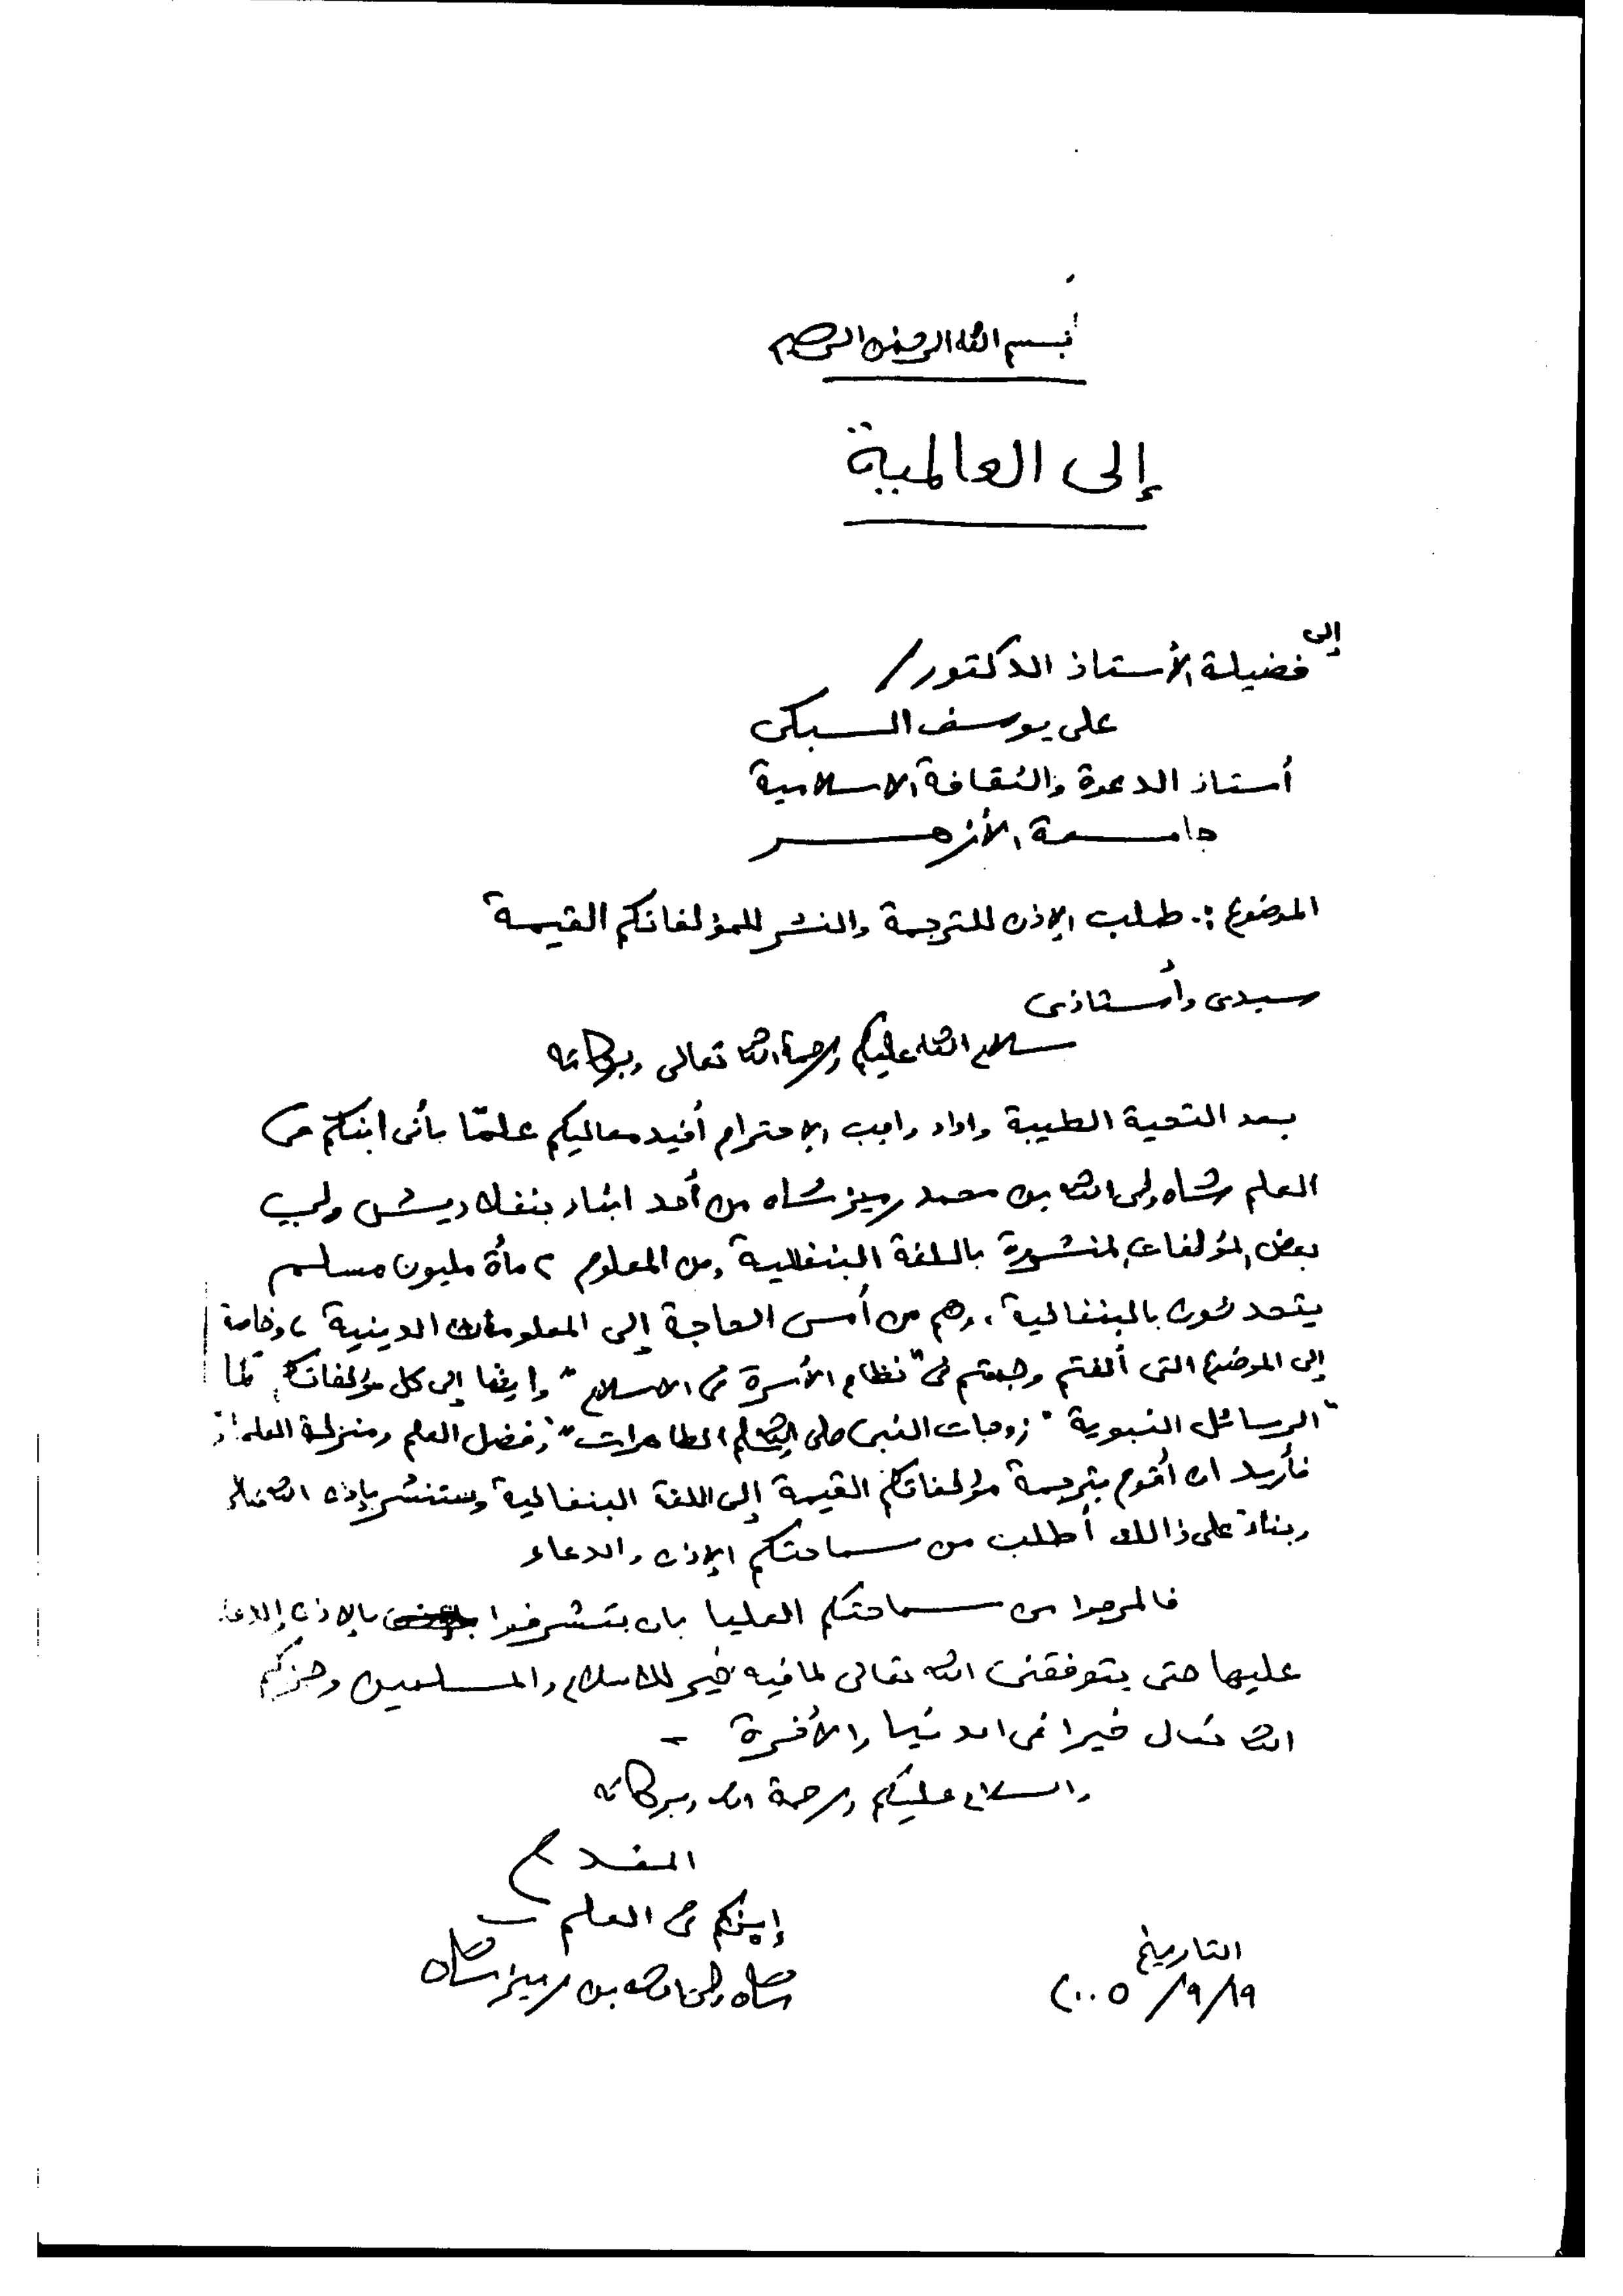 بسم الله الرحمن الرحيم
إلى العالمية
إلى
فضيلة الأستاذ الدكتور/
على يوسف السبكى
أستاذ الدعوة والثقافة الاسلامية
جامعة الأزهر
الموضوع :. طلب الإذن للترجمة والنشر للمؤلفاتكم القيمة
سيدى وأستاذى
سلام الله عليكم ورحمة الله تعالى وبركاته
بعد التحية الطيبة واداء واجب الإحترام أفيد معاليكم علمًا بأنى ابنكم فى
العلم شاه ولى الله بن محمد رميز شاه من أحد ابناء بنغلاديش ولى
بعض المؤلفات المنشورة باللغة البنغالية ومن المعلوم ٢ مأة مليون مسلم
يتحدثون بالبنغالية، وهم من أمس الحاجة إلى المعلومات الدينية، وخاصة
إلى الموضوع التى ألفتم وجمعتم فى "نظام الأسرة فى الاسلام" وايضا إلى كل مؤلفاتكم كما
"الرسائل النبوية" "زوجات النبى صلى الله الطاهرات" "فضل العلم ومنزلة العلماء"
فأريد ان أقوم بترجمة مؤلفاتكم القيمة إلى اللغة البنغالية وستنشر بإذن الله تعالى
وبناء على ذالك أطلب من سماحتكم الإذن والدعاء
فالمرجوا من سماحتكم العليا بان بتشرفوا بالإذن والدعاء
عليها حتى يتوفقنى الله تعالى لما فيه خير للاسلام والمسلمين وجزكم
الله تعالى خيرا فى الدنيا والأخرة -
والسلام عليكم ورحمة الله وبركاته
المقدم
إبنكم فى العلم
شاه ولى الله بن رميز شاه
التاريخ
١٩/٩/٢٠٠٥